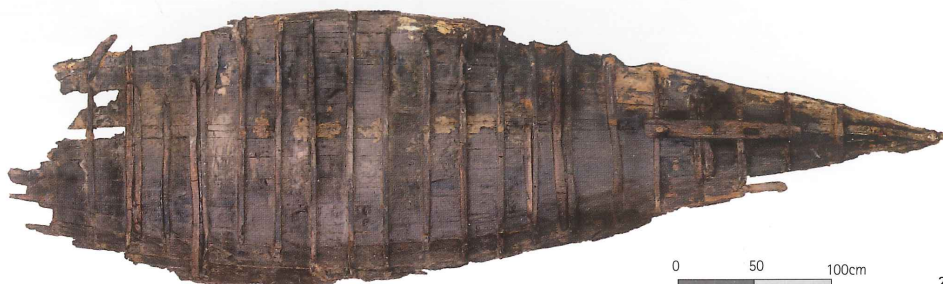 0 50 100cm